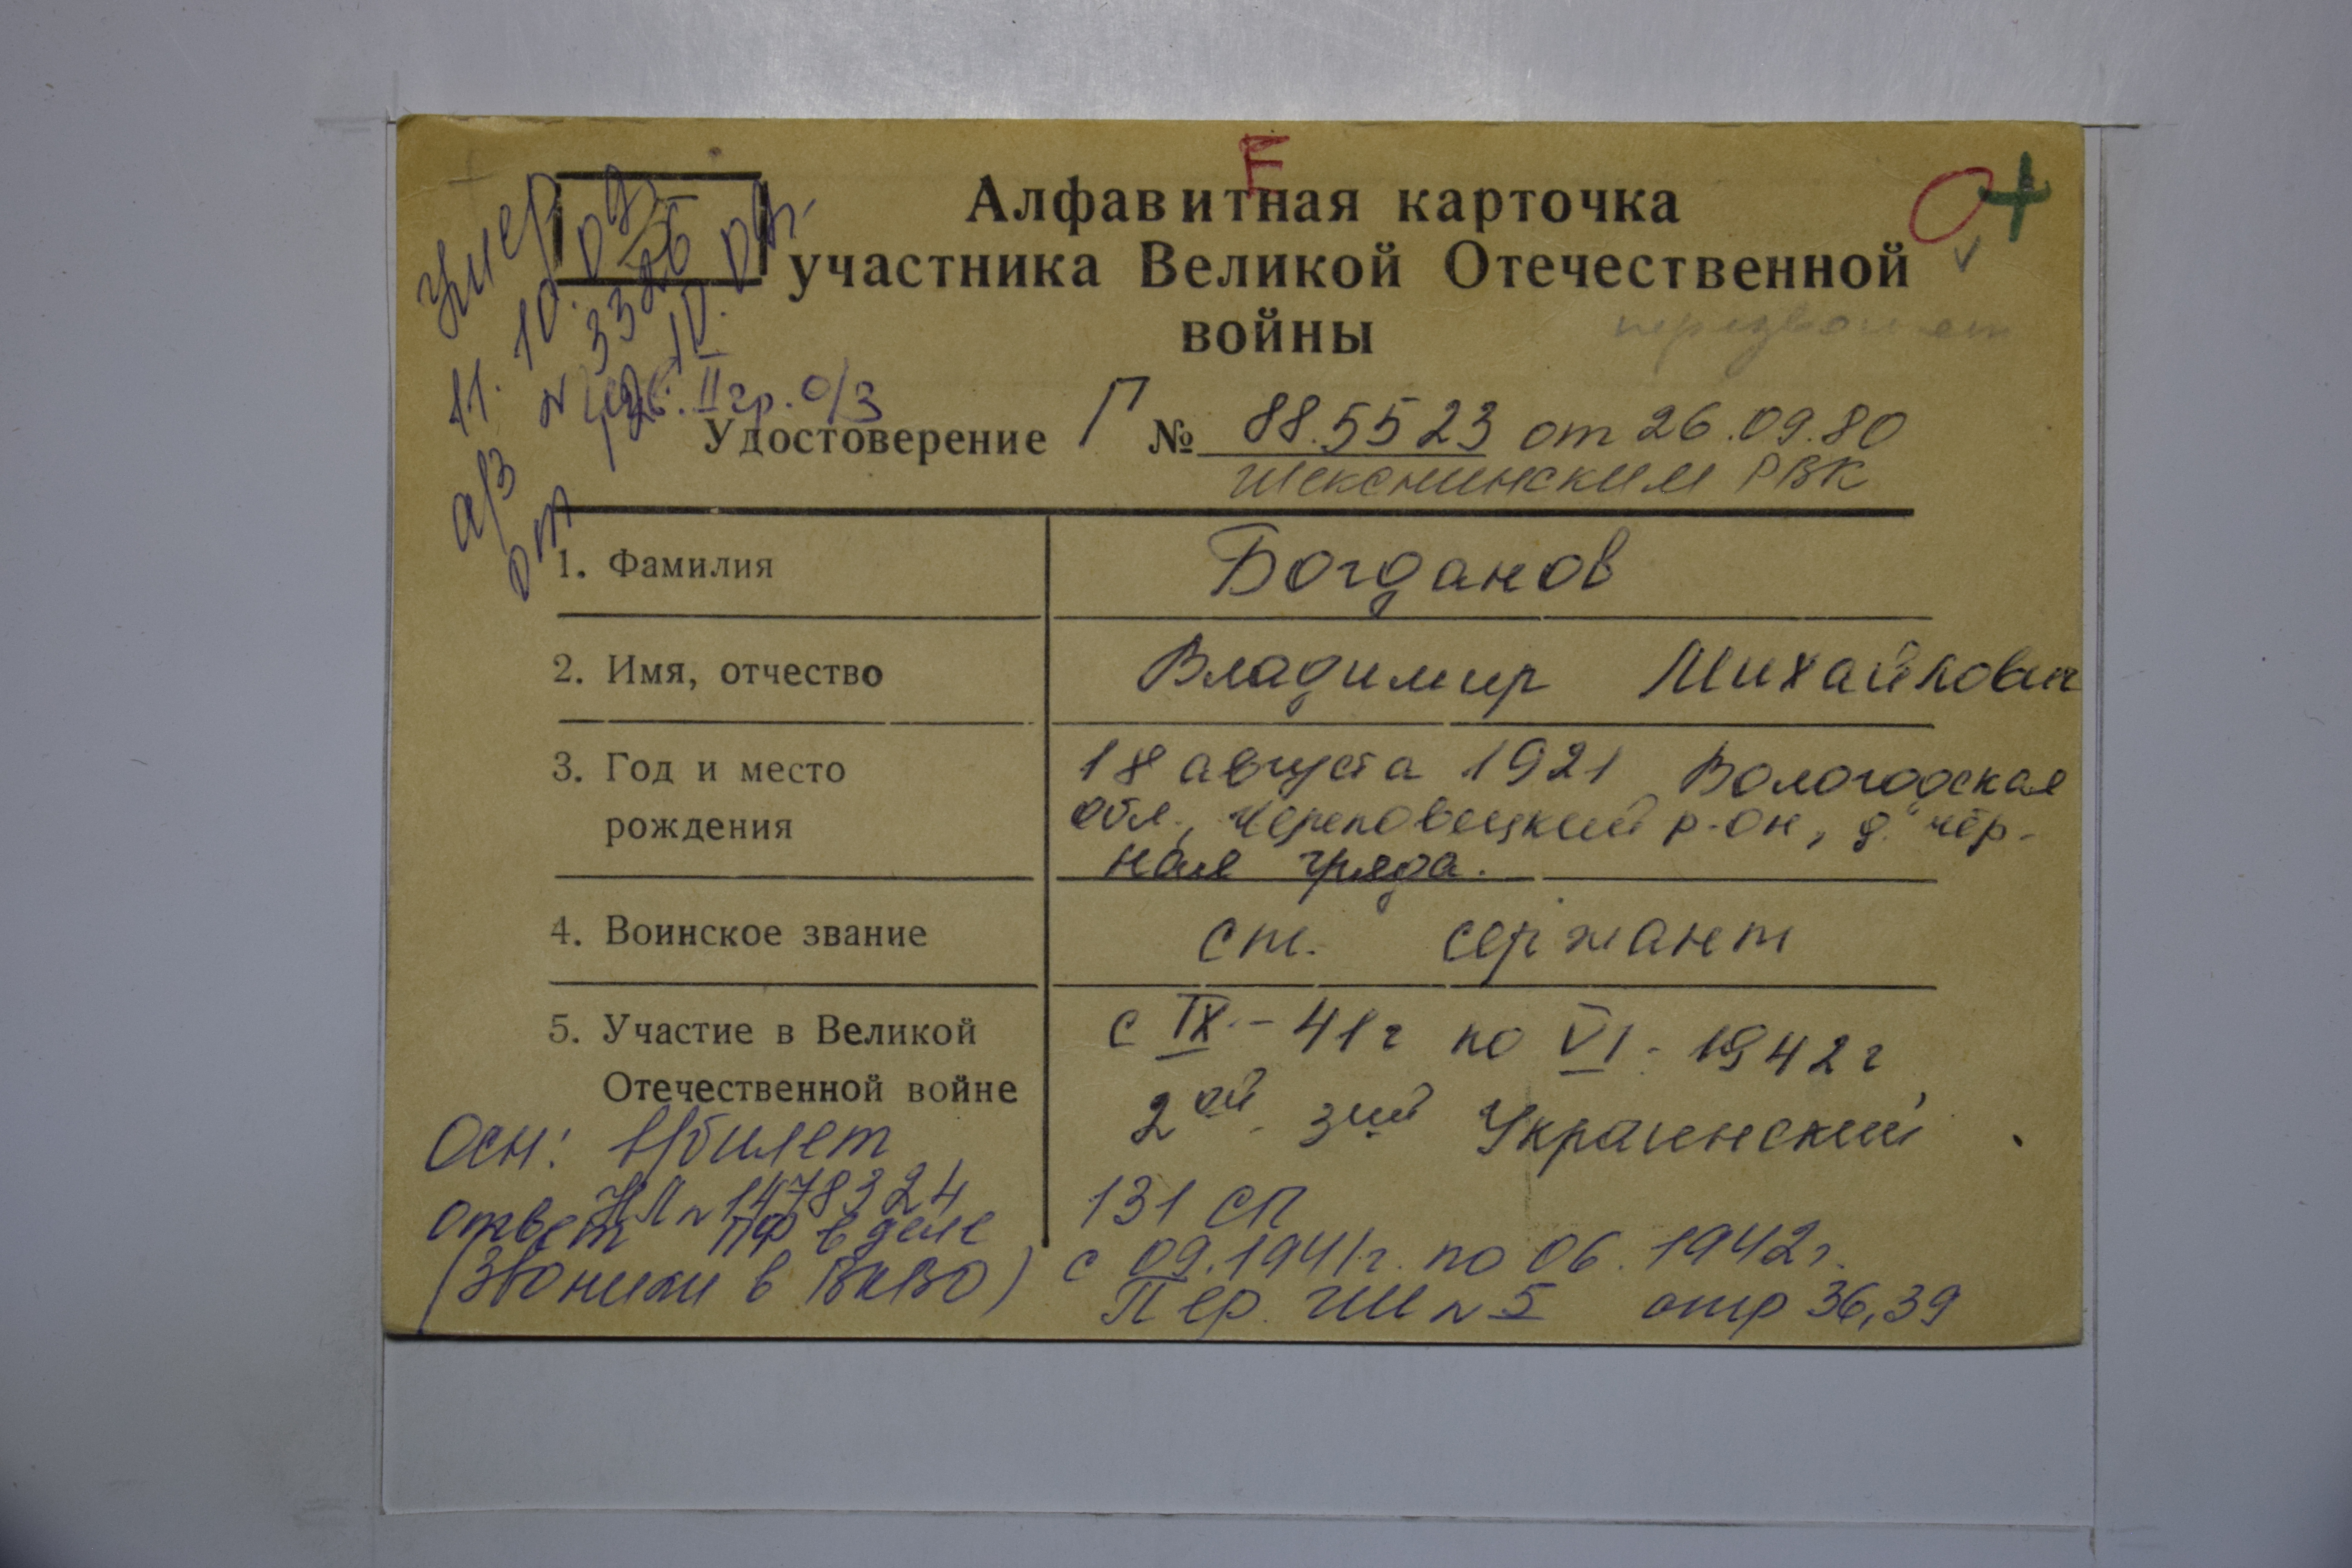 Е
Алфавитная карточка
участника Великой Отечественной
войны
умер
11.10.07г
а/з № 3326
от 12.10.07г.
инв. II гр. о/з
Удостоверение Г № 88.5523 от 26.09.80
Шекснинским РВК
1. Фамилия Богданов
2. Имя, отчество Владимир Михайлович
3. Год и место 18 августа 1921 Вологодская
рождения обл., Череповецкий р-он, д. "Чёр-
ная гряда.
4. Воинское звание ст. сержант
5. Участие в Великой с IX-41г по VI-1942г
Отечественной войне 2ой. 3ий Украинский
Осн: в/билет
НЛ № 1478324
ответ ПФ в деле
(звонили в ВКВО)
131 СП
с 09.1941г. по 06.1942г.
Пер. ГШ № 5 стр 36,39